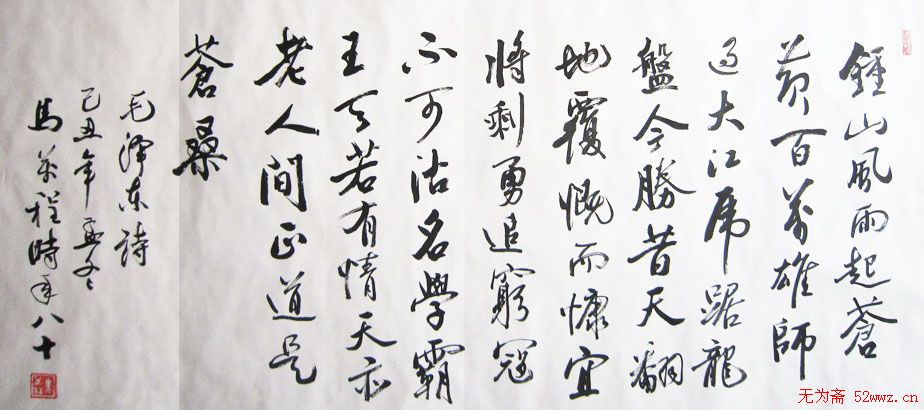 鍾山風雨起蒼
黄百萬雄師
過大江虎踞龍
盤今勝昔天翻
地覆慨而慷宜
將剩勇追窮寇
不可沽名學霸
王天若有情天亦
老人間正道是
蒼桑
毛泽东詩
己丑年孟冬
馬萬程時年八十
无为斋 52wwz.cn